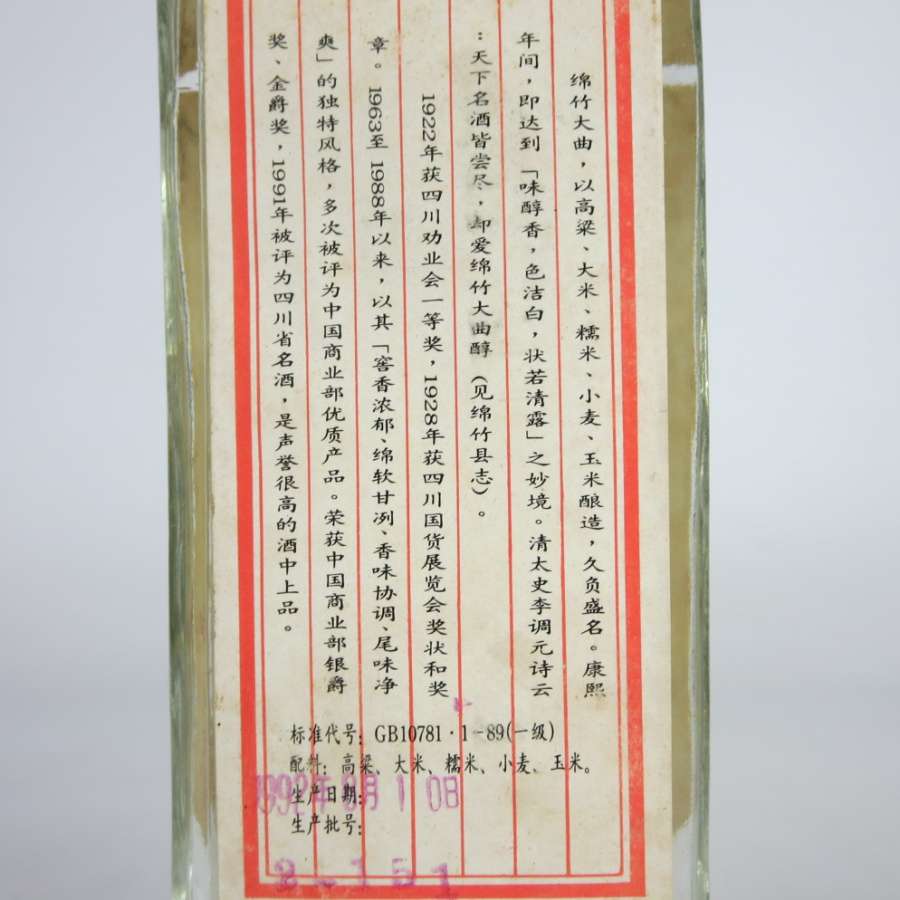 绵竹大曲，以高粱、大米、糯米、小麦、玉米酿造，久负盛名。康熙
年间，即达到「味醇香，色洁白，状若清露」之妙境。清太史李调元诗云
：天下名酒皆尝尽，却爱绵竹大曲醇（见绵竹县志）。
1922年获四川劝业会一等奖，1928年获四川国货展览会奖状和奖
章。1963至1988年以来，以其「窖香浓郁、绵软甘冽、香味协调、尾味净
爽」的独特风格，多次被评为中国商业部优质产品。荣获中国商业部银爵
奖、金爵奖，1991年被评为四川省名酒，是声誉很高的酒中上品。
标准代号：GB10781·1-89(一级)
配料：高粱、大米、糯米、小麦、玉米。
生产日期：1992年 月10日
生产批号：
-151